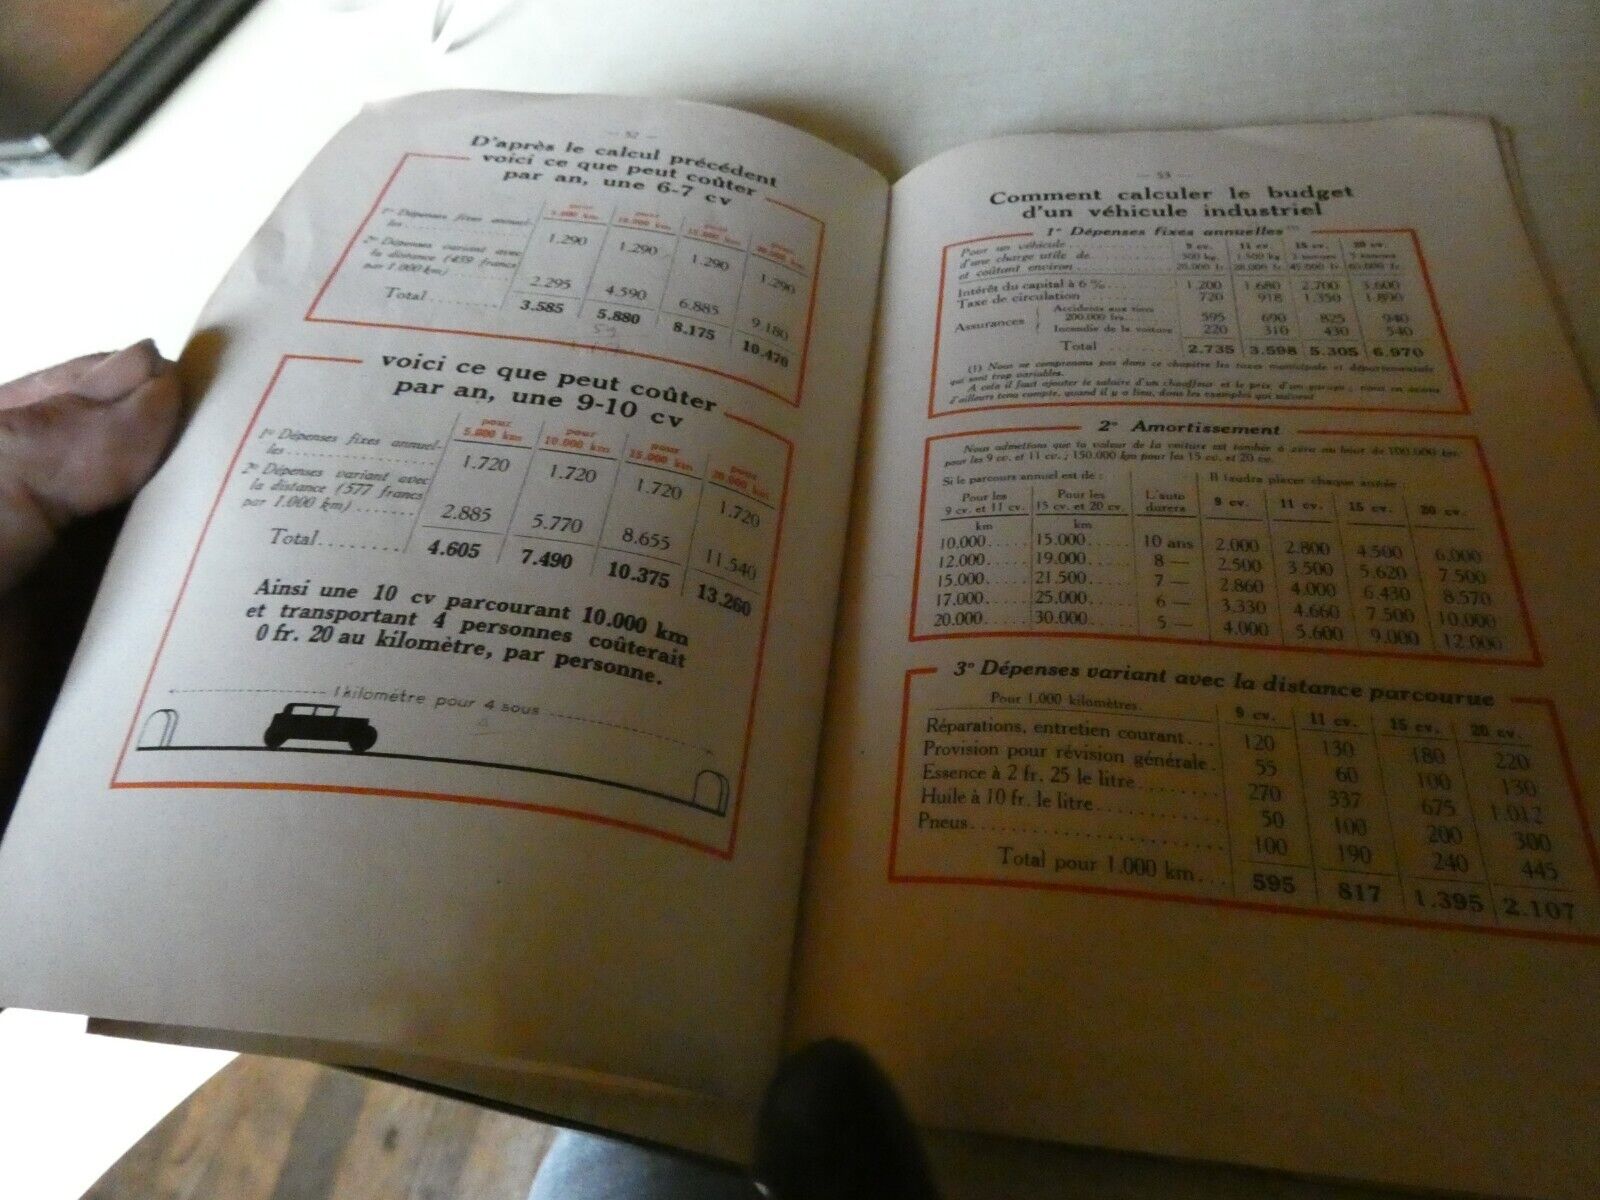 — 52 —
D'après le calcul précédent
voici ce que peut coûter
par an, une 6-7 cv
pour 5.000 km pour 10.000 km pour 15.000 km pour 20.000 km
1º Dépenses fixes annuel-
les 1.290 1.290 1.290 1.290
2º Dépenses variant avec
la distance (459 francs
par 1.000 km) 2.295 4.590 6.885 9.180
Total 3.585 5.880 8.175 10.470
voici ce que peut coûter
par an, une 9-10 cv
pour 5.000 km pour 10.000 km pour 15.000 km pour 20.000 km
1º Dépenses fixes annuel-
les 1.720 1.720 1.720 1.720
2º Dépenses variant avec
la distance (577 francs
par 1.000 km) 2.885 5.770 8.655 11.540
Total 4.605 7.490 10.375 13.260
Ainsi une 10 cv parcourant 10.000 km
et transportant 4 personnes coûterait
0 fr. 20 au kilomètre, par personne.
1 kilomètre pour 4 sous
— 53 —
Comment calculer le budget
d'un véhicule industriel
1º Dépenses fixes annuelles (1)
Pour un véhicule 9 cv. 11 cv. 15 cv. 20 cv.
d'une charge utile de 500 kg 1.500 kg
et coûtant environ 20.000 fr. 28.000 fr. 45.000 fr. 60.000 fr.
Intérêt du capital à 6 % 1.200 1.680 2.700 3.600
Taxe de circulation 720 918 1.350 1.890
Assurances Accidents aux tiers
200.000 frs 595 690 825 940
Incendie de la voiture 220 310 430 540
Total 2.735 3.598 5.305 6.970
(1) Nous ne comprenons pas dans ce chapitre les taxes municipale et départementale
qui sont trop variables.
A cela il faut ajouter le salaire d'un chauffeur et le prix d'un garage ; nous en avons
d'ailleurs tenu compte, quand il y a lieu, dans les exemples qui suivent
2º Amortissement
Nous admettons que la valeur de la voiture est tombée à zéro au bout de 100.000 km
pour les 9 cv. et 11 cv. ; 150.000 km pour les 15 cv. et 20 cv.
Si le parcours annuel est de : Il faudra placer chaque année :
Pour les 9 cv. et 11 cv. Pour les 15 cv. et 20 cv. L'auto durera 9 cv. 11 cv. 15 cv. 20 cv.
km km
10.000 15.000 10 ans 2.000 2.800 4.500 6.000
12.000 19.000 8 — 2.500 3.500 5.620 7.500
15.000 21.500 7 — 2.860 4.000 6.430 8.570
17.000 25.000 6 — 3.330 4.660 7.500 10.000
20.000 30.000 5 — 4.000 5.600 9.000 12.000
3º Dépenses variant avec la distance parcourue
Pour 1.000 kilomètres. 9 cv. 11 cv. 15 cv. 20 cv.
Réparations, entretien courant 120 130 180 220
Provision pour révision générale 55 60 100 130
Essence à 2 fr. 25 le litre 270 337 675 1.012
Huile à 10 fr. le litre 50 100 200 300
Pneus 100 190 240 445
Total pour 1.000 km 595 817 1.395 2.107